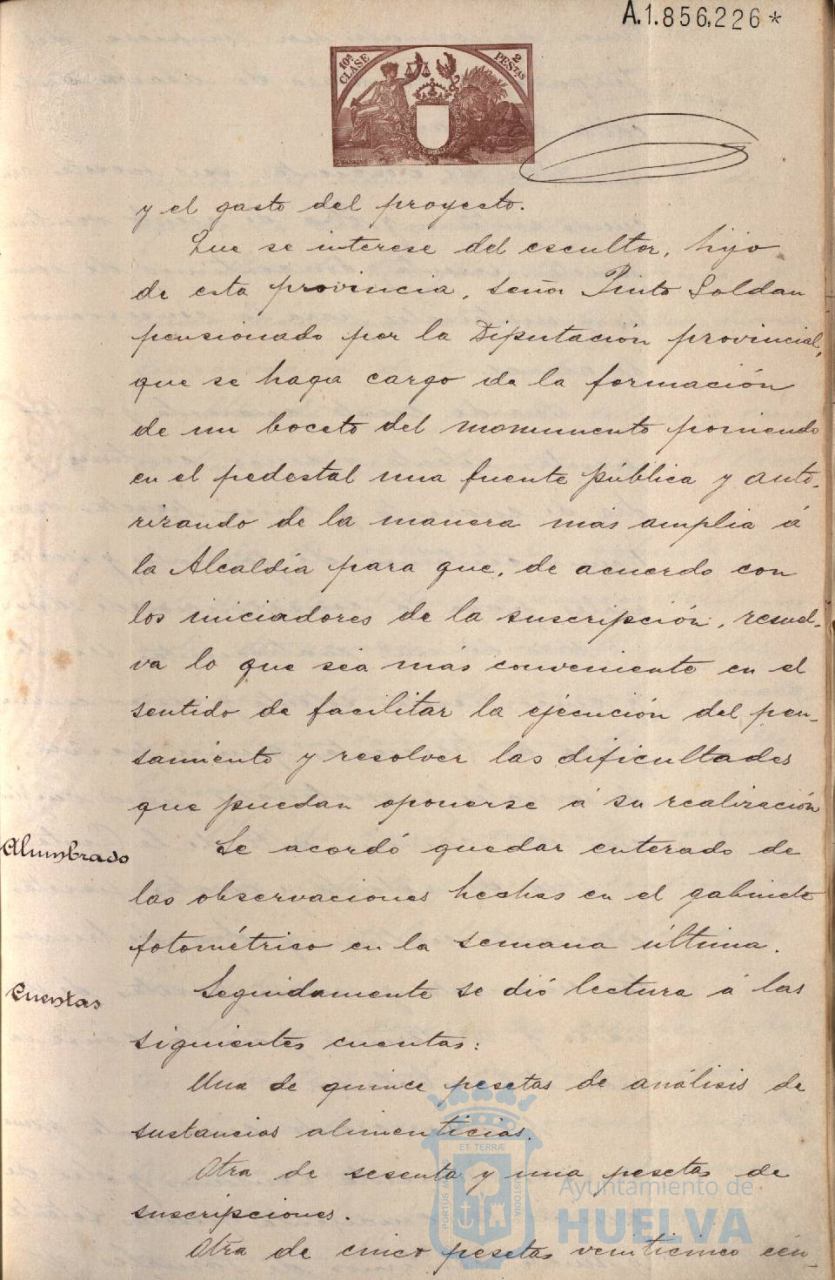 A.1.856,226*
10ª CLASE
2 PESTAS
y el gasto del proyecto.
Que se interese del escultor, hijo
de esta provincia, señor Pinto Soldan
pensionado por la Diputación provincial,
que se haga cargo de la formación
de un boceto del monumento poniendo
en el pedestal una fuente pública y auto-
rizando de la manera más amplia á
la Alcaldía para que, de acuerdo con
los iniciadores de la suscripción, resuel-
va lo que sea más conveniente en el
sentido de facilitar la ejecución del pen-
samiento y resolver las dificultades
que puedan oponerse á su realización
Alumbrado
Se acordó quedar enterado de
las observaciones hechas en el gabinete
fotométrico en la semana última.
Cuentas
Seguidamente se dió lectura á las
siguientes cuentas:
Una de quince pesetas de análisis de
sustancias alimenticias.
Otra de sesenta y una pesetas de
suscripciones.
Otra de cinco pesetas veinticinco cén-
PORTUS MARIS ET TERRÆ CUSTODIA
Ayuntamiento de
HUELVA